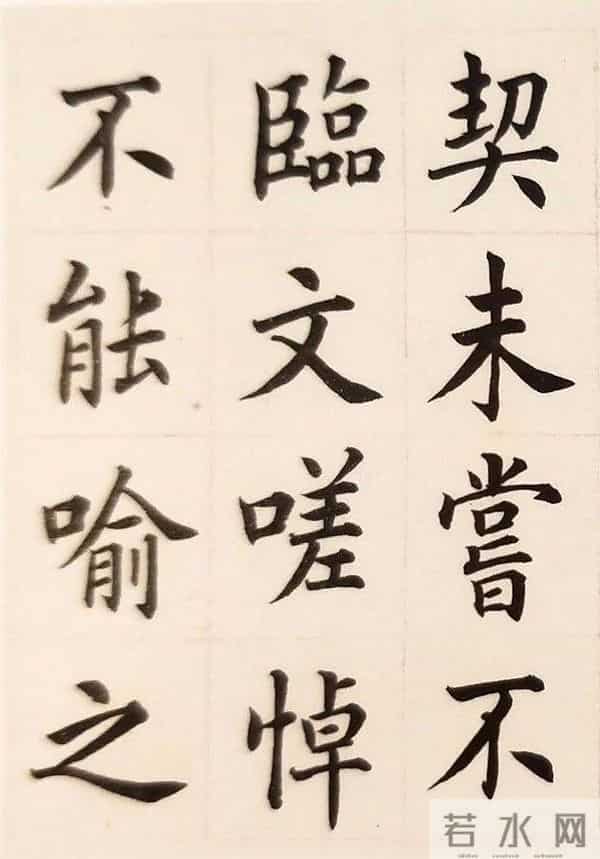 契未嘗不
臨文嗟悼
不能喻之
若水网